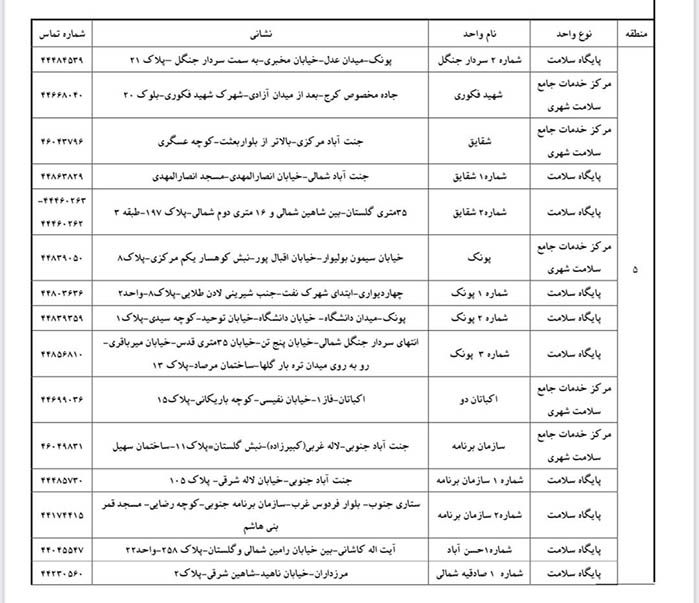 منطقه نوع واحد نام واحد نشانی شماره تماس
پایگاه سلامت شماره ۲ سردار جنگل پونک-میدان عدل-خیابان مخبری-به سمت سردار جنگل –پلاک ۲۱ ۴۴۴۸۴۵۳۹
مرکز خدمات جامع
سلامت شهری شهید فکوری جاده مخصوص کرج-بعد از میدان آزادی-شهرک شهید فکوری-بلوک ۲۰ ۴۴۶۶۸۰۴۰
مرکز خدمات جامع
سلامت شهری شقایق جنت آباد مرکزی-بالاتر از بلواربعثت-کوچه عسگری ۴۶۰۴۳۷۹۶
پایگاه سلامت شماره۱ شقایق جنت آباد شمالی-خیابان انصارالمهدی-مسجد انصارالمهدی ۴۴۸۶۳۸۲۹
پایگاه سلامت شماره۲ شقایق ۳۵متری گلستان-بین شاهین شمالی و ۱۶ متری دوم شمالی-پلاک ۱۹۷-طبقه ۳ ۴۴۴۶۰۲۶۳-
۴۴۴۶۰۲۶۲
مرکز خدمات جامع
سلامت شهری پونک خیابان سیمون بولیوار-خیابان اقبال پور-نبش کوهسار یکم مرکزی-پلاک۸ ۴۴۸۳۹۰۵۰
۵
پایگاه سلامت شماره ۱ پونک چهاردیواری-ابتدای شهرک نفت-جنب شیرینی لادن طلایی-پلاک۸-واحد۲ ۴۴۸۰۳۶۳۶
پایگاه سلامت شماره ۲ پونک پونک-میدان دانشگاه- خیابان دانشگاه-خیابان توحید-کوچه سیدی-پلاک۱ ۴۴۸۳۹۳۵۹
پایگاه سلامت شماره ۳ پونک انتهای سردار جنگل شمالی-خیابان پنج تن-خیابان ۳۵متری قدس-خیابان میرباقری-
رو به روی میدان تره بار گلها-ساختمان مرصاد-پلاک ۱۳ ۴۴۸۵۶۸۱۰
مرکز خدمات جامع
سلامت شهری اکباتان دو اکباتان-فاز۱-خیابان نفیسی-کوچه باریکانی-پلاک۱۵ ۴۴۶۹۹۰۳۶
مرکز خدمات جامع
سلامت شهری سازمان برنامه جنت آباد جنوبی-لاله غربی(کبیرزاده)-نبش گلستان=پلاک۱۱-ساختمان سهیل ۴۶۰۴۹۸۳۱
پایگاه سلامت شماره ۱ سازمان برنامه جنت آباد جنوبی-خیابان لاله شرقی- پلاک ۱۰۵ ۴۴۴۸۵۷۳۰
پایگاه سلامت شماره۲ سازمان برنامه ستاری جنوب- بلوار فردوس غرب-سازمان برنامه جنوبی-کوچه رضایی- مسجد قمر
بنی هاشم ۴۴۱۷۴۴۱۵
پایگاه سلامت شماره۱حسن آباد آیت اله کاشانی-بین خیابان رامین شمالی وگلستان-پلاک ۲۵۸-واحد۲۲ ۴۴۰۴۵۵۴۷
پایگاه سلامت شماره ۱ صادقیه شمالی مرزداران-خیابان ناهید-شاهین شرقی-پلاک۲ ۴۴۲۳۰۵۶۰